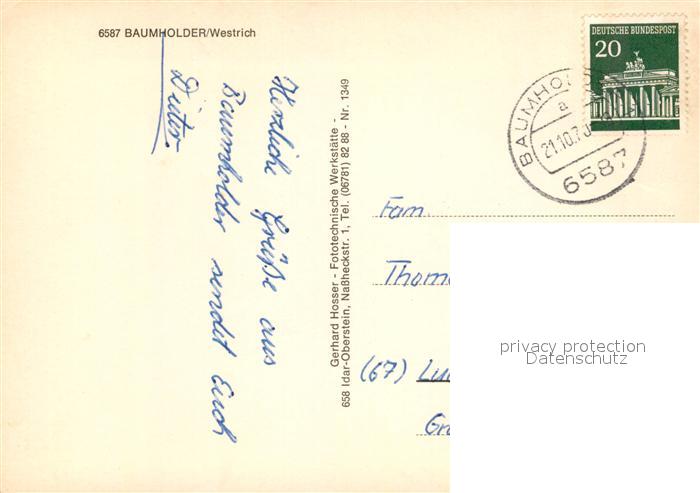 6587 BAUMHOLDER/Westrich
Herzliche Grüße aus
Baumholder sendet Euch
Dieter.
Gerhard Hosser - Fototechnische Werkstätte -
658 Idar-Oberstein, Naßheckstr. 1, Tel. (06781) 82 88 - Nr. 1349
DEUTSCHE BUNDESPOST
20
BAUMHO
a
21.10.70
6587
Fam.
Thom
(67) Lu
Gr
privacy protection
Datenschutz